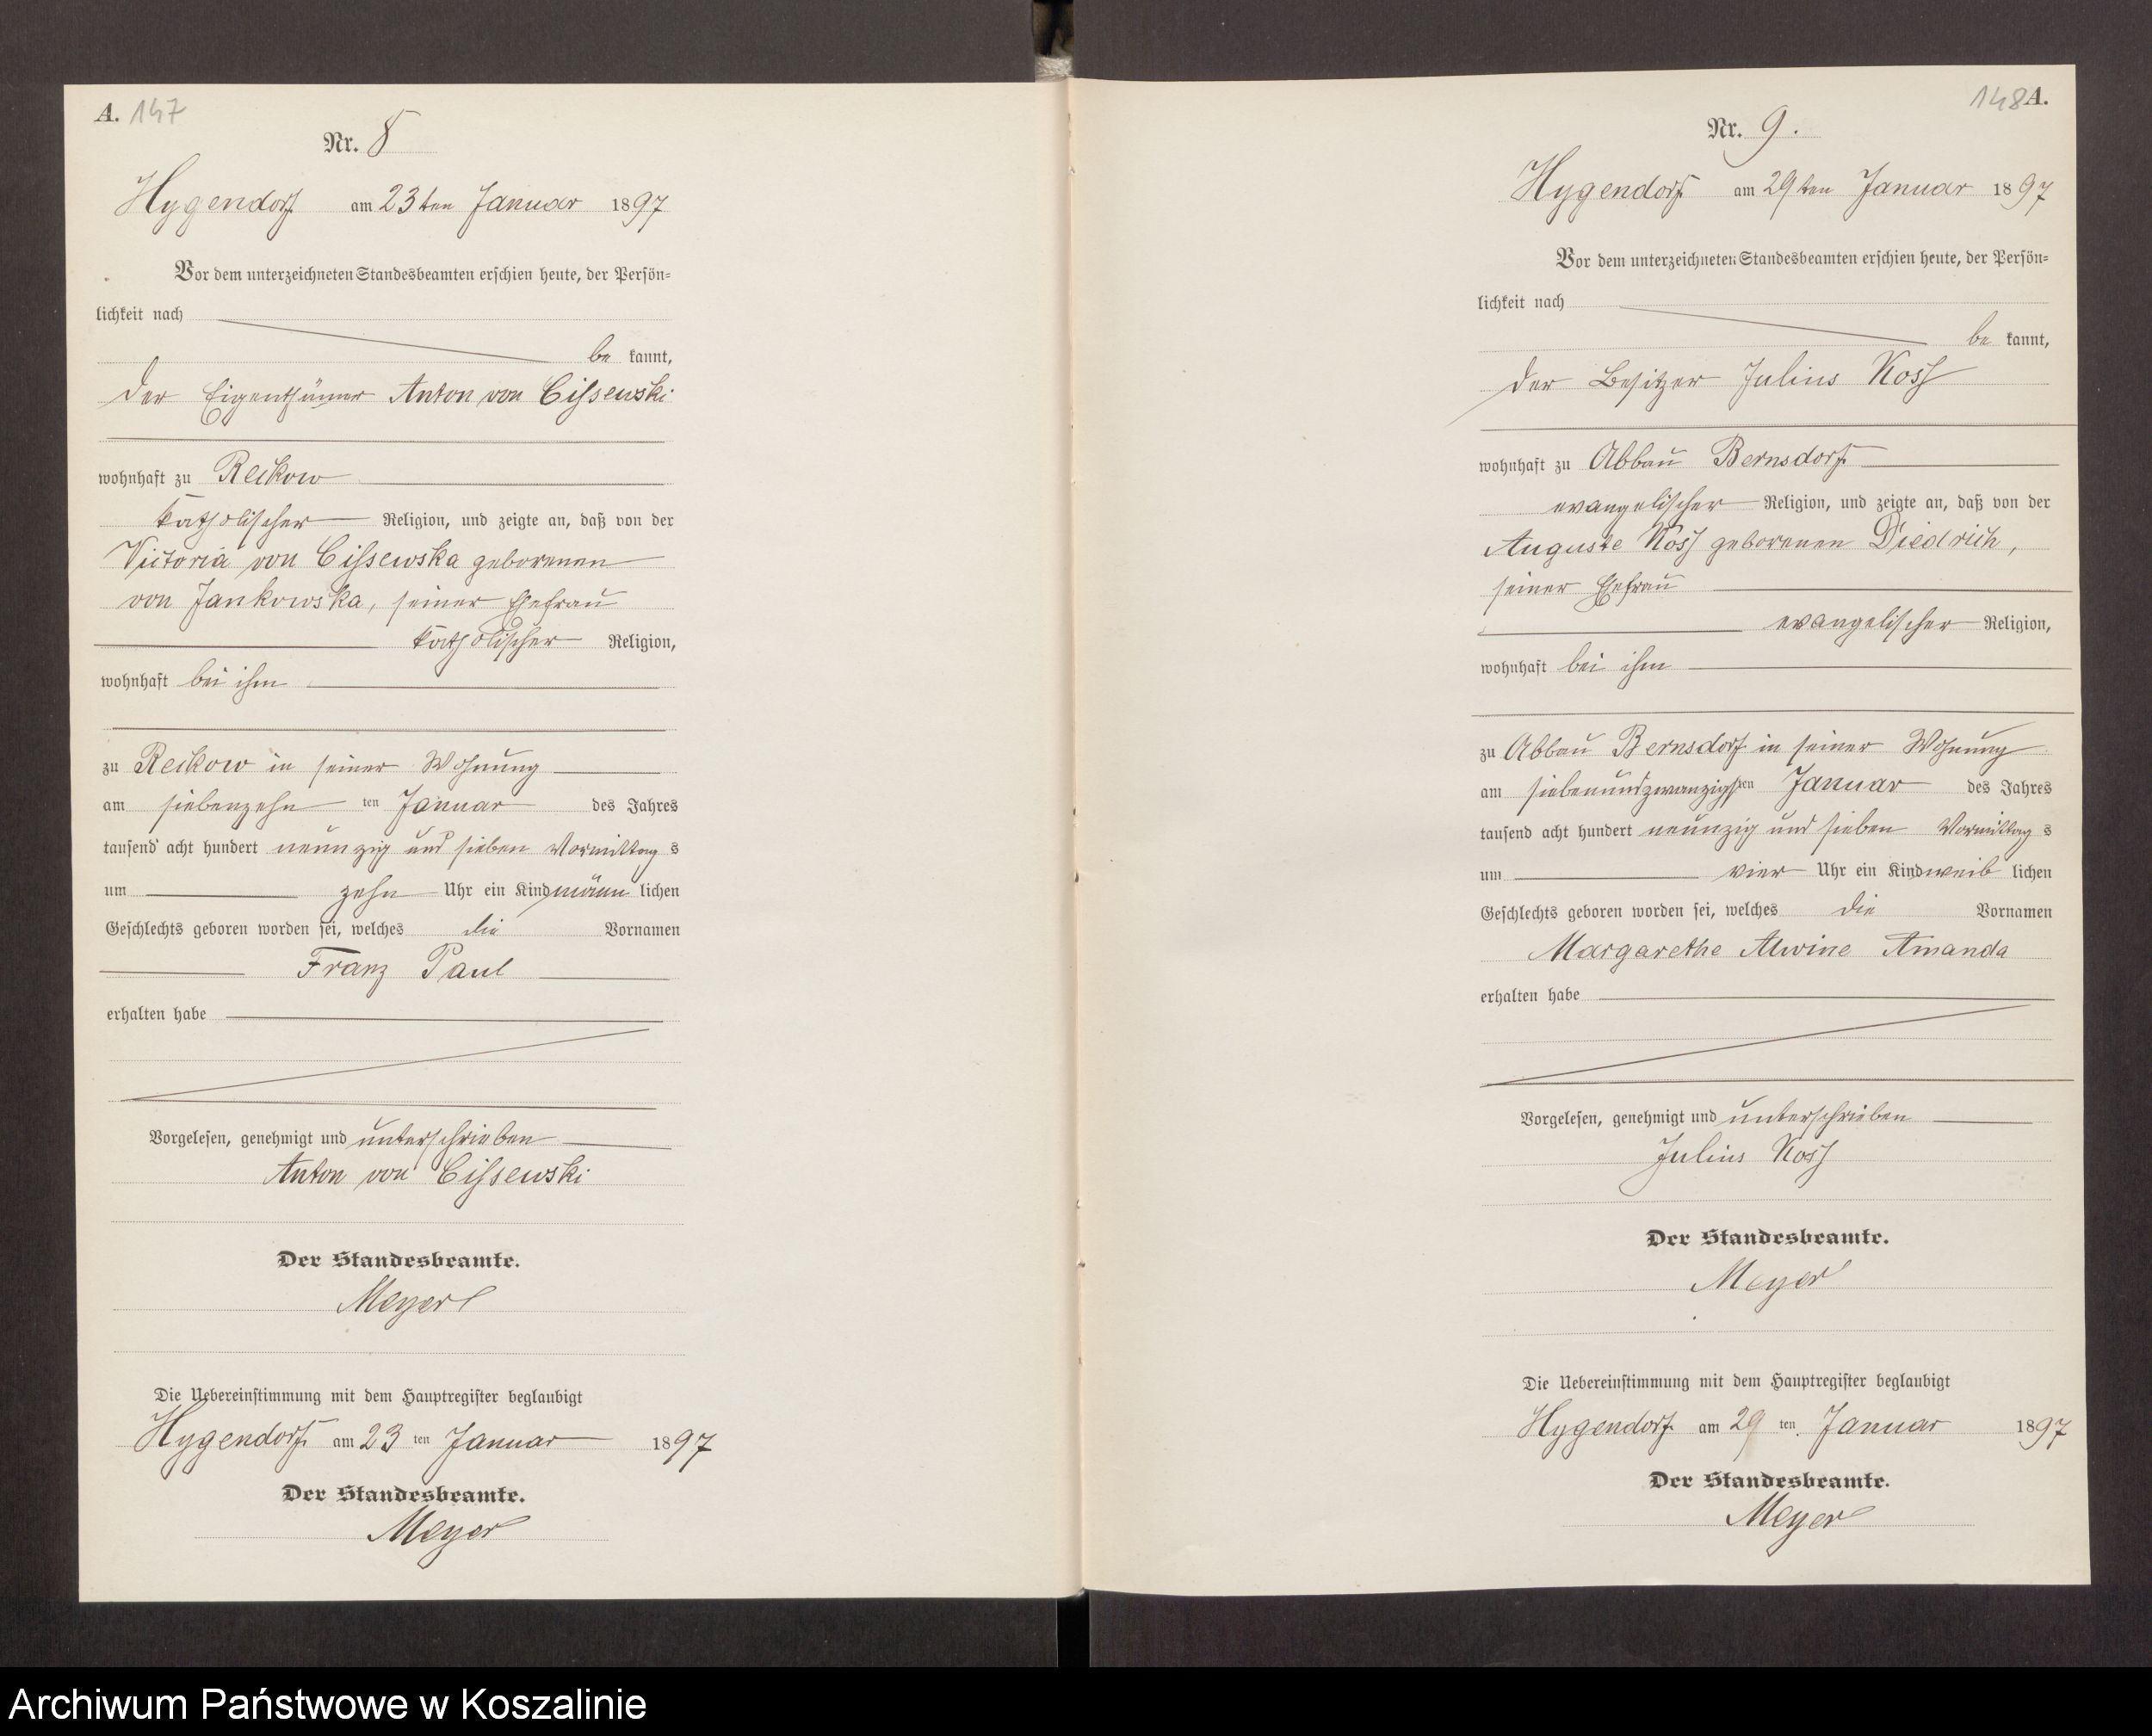 A. 147
Nr. 8
Hygendorf am 23ten Januar 1897
Vor dem unterzeichneten Standesbeamten erschien heute, der Persön-
lichkeit nach
be kannt,
der Eigenthümer Anton von Cissewski
wohnhaft zu Reckow
katholischer Religion, und zeigte an, daß von der
Victoria von Cissewska geborenen
von Jankowska, seiner Ehefrau
katholischer Religion,
wohnhaft bei ihm
zu Reckow in seiner Wohnung
am siebenzehn ten Januar des Jahres
tausend acht hundert neunzig und sieben Vormittag s
um zehn Uhr ein Kind männ lichen
Geschlechts geboren worden sei, welches die Vornamen
Franz Paul
erhalten habe
Vorgelesen, genehmigt und unterschrieben
Anton von Cissewski
Der Standesbeamte.
Meyer
Die Uebereinstimmung mit dem Hauptregister beglaubigt
Hygendorf am 23 ten Januar 1897
Der Standesbeamte.
Meyer
148 A.
Nr. 9.
Hygendorf am 29ten Januar 1897
Vor dem unterzeichneten Standesbeamten erschien heute, der Persön-
lichkeit nach
be kannt,
der Besitzer Julius Koss
wohnhaft zu Abbau Bernsdorf
evangelischer Religion, und zeigte an, daß von der
Auguste Koss geborenen Diedrich,
seiner Ehefrau
evangelischer Religion,
wohnhaft bei ihm
zu Abbau Bernsdorf in seiner Wohnung
am siebenundzwanzigsten Januar des Jahres
tausend acht hundert neunzig und sieben Vormittag s
um vier Uhr ein Kind weib lichen
Geschlechts geboren worden sei, welches die Vornamen
Margarethe Alwine Amanda
erhalten habe
Vorgelesen, genehmigt und unterschrieben
Julius Koss
Der Standesbeamte.
Meyer
Die Uebereinstimmung mit dem Hauptregister beglaubigt
Hygendorf am 29 ten Januar 1897
Der Standesbeamte.
Meyer
Archiwum Państwowe w Koszalinie